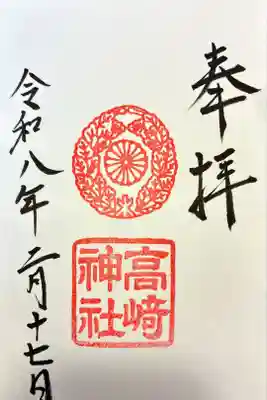 奉拝
高崎
神社
令和八年二月十七日